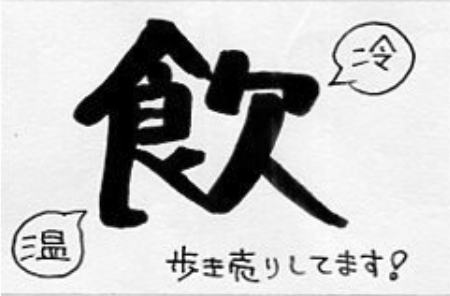 冷
飲
温
歩き売りしてます!